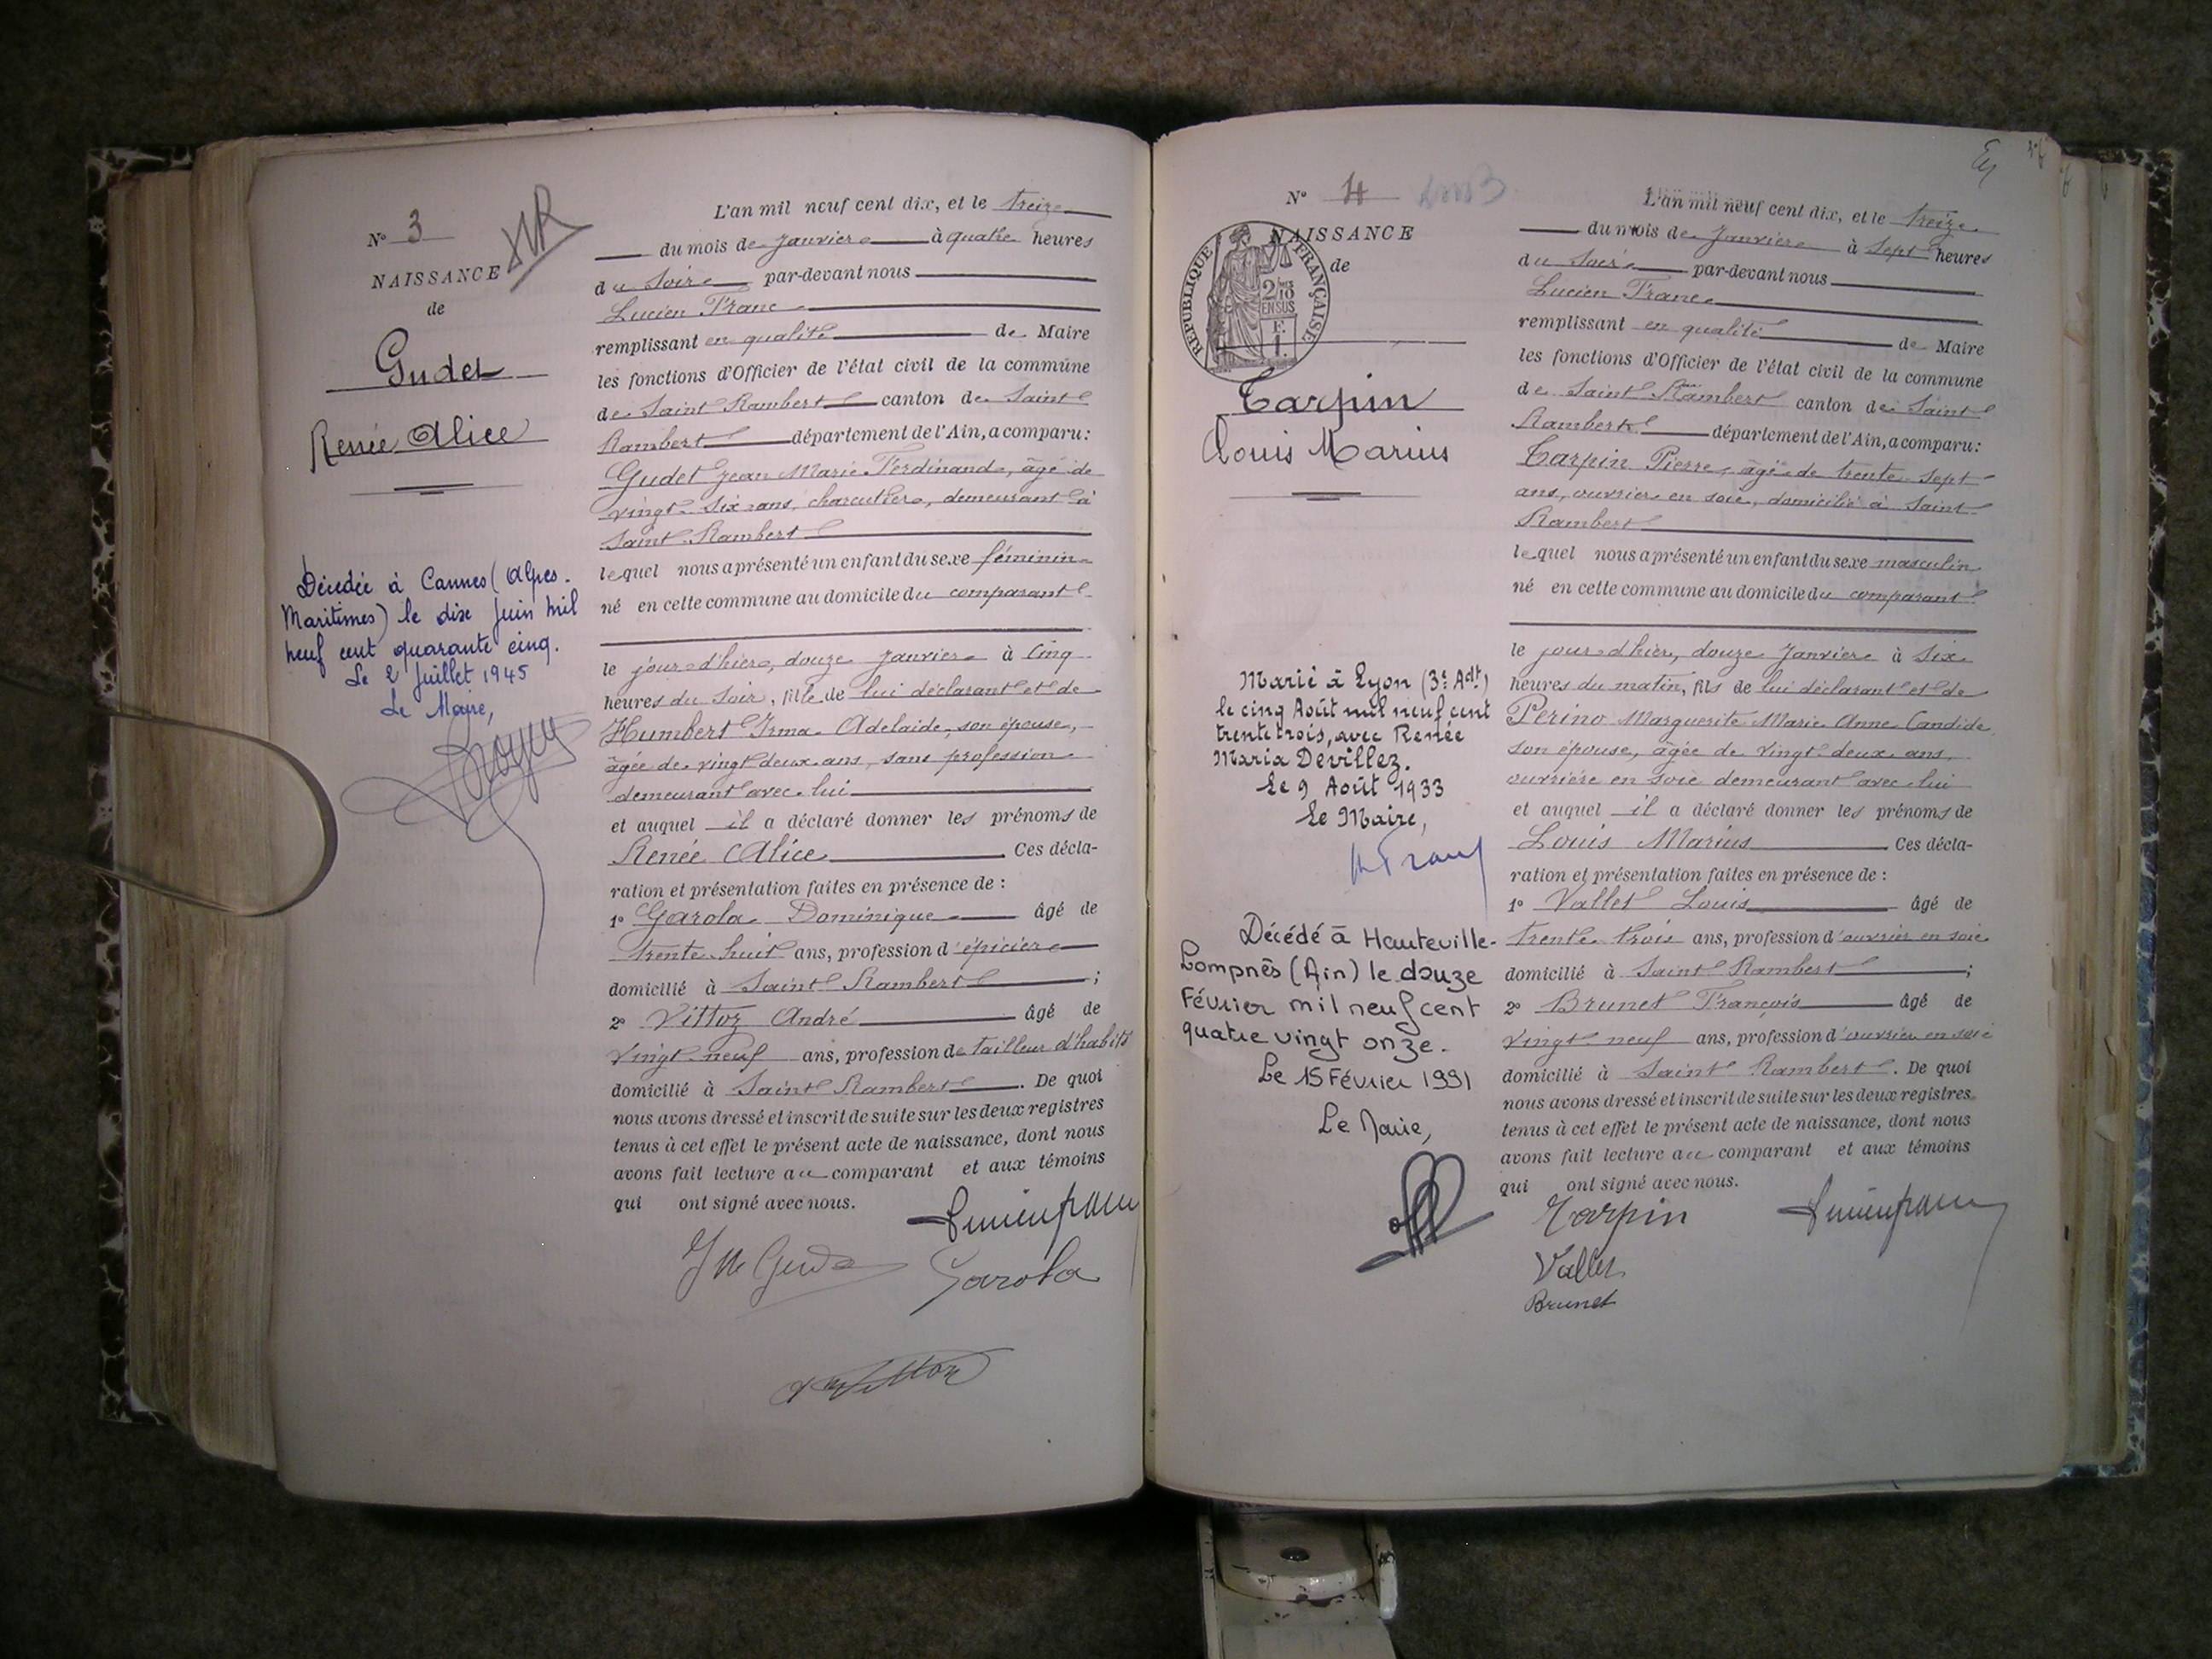 N° 3
NAISSANCE
de
Gudet
Renée Alice
Décédée à Cannes (Alpes-
Maritimes) le dix Juin mil
neuf cent quarante cinq.
Le 2 Juillet 1945
Le Maire,
L'an mil neuf cent dix, et le treize
du mois de Janvier à quatre heures
du soir par-devant nous
Lucien Franc
remplissant en qualité de Maire
les fonctions d'Officier de l'état civil de la commune
de Saint Rambert canton de Saint
Rambert département de l'Ain, a comparu:
Gudet Jean Marie Ferdinand, âgé de
vingt-six ans, charcutier, demeurant à
Saint-Rambert
lequel nous a présenté un enfant du sexe féminin
né en cette commune au domicile du comparant
le jour d'hier, douze Janvier à cinq
heures du soir, fille de lui déclarant et de
Humbert Irma Adelaide, son épouse,
âgée de vingt deux ans, sans profession
demeurant avec lui
et auquel il a déclaré donner les prénoms de
Renée Alice Ces décla-
ration et présentation faites en présence de :
1° Garola Dominique âgé de
trente huit ans, profession d'épicier
domicilié à Saint Rambert ;
2° Vittoz André âgé de
vingt-neuf ans, profession de tailleur d'habits
domicilié à Saint Rambert. De quoi
nous avons dressé et inscrit de suite sur les deux registres
tenus à cet effet le présent acte de naissance, dont nous
avons fait lecture au comparant et aux témoins
qui ont signé avec nous.
Lucien franc
Garola
N° 4
NAISSANCE
de
RÉPUBLIQUE FRANÇAISE
2/10
EN SUS
Tarpin
Louis Marius
Marié à Lyon (3e Adt)
le cinq Août mil neuf cent
trente trois, avec Renée
Maria Devillez.
Le 9 Août 1933
Le Maire,
Décédé à Hauteville-
Lompnès (Ain) le douze
Février mil neuf cent
quatre vingt onze.
Le 15 Février 1991
Le Maire,
L'an mil neuf cent dix, et le treize
du mois de Janvier à sept heures
du soir par-devant nous
Lucien Franc
remplissant en qualité de Maire
les fonctions d'Officier de l'état civil de la commune
de Saint Rambert canton de Saint
Rambert département de l'Ain, a comparu:
Tarpin Pierre, âgé de trente sept
ans, ouvrier en soie, domicilié à Saint
Rambert
lequel nous a présenté un enfant du sexe masculin
né en cette commune au domicile du comparant
le jour d'hier, douze Janvier à six
heures du matin, fils de lui déclarant et de
Perino Marguerite Marie Anne Candide
son épouse, âgée de vingt deux ans,
ouvrière en soie demeurant avec lui
et auquel il a déclaré donner les prénoms de
Louis Marius Ces décla-
ration et présentation faites en présence de :
1° Vallet Louis âgé de
trente trois ans, profession d'ouvrier en soie
domicilié à Saint Rambert ;
2° Brunet François âgé de
vingt neuf ans, profession d'ouvrier en soie
domicilié à Saint Rambert. De quoi
nous avons dressé et inscrit de suite sur les deux registres
tenus à cet effet le présent acte de naissance, dont nous
avons fait lecture au comparant et aux témoins
qui ont signé avec nous.
Tarpin
Lucien franc
Vallet
Brunet